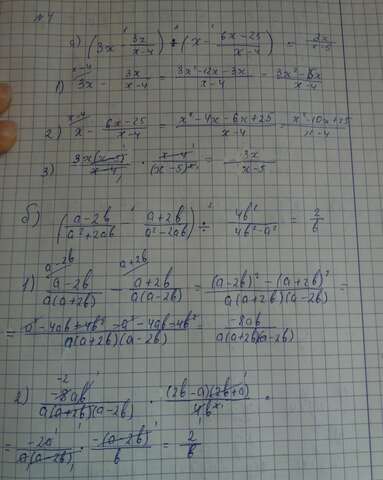 №4
a) (3x - 3x/x-4) ÷ (x - 6x-25/x-4) = 3x/x-5
1) 3x - 3x/x-4 = 3x²-12x-3x/x-4 = 3x²-15x/x-4
2) x - 6x-25/x-4 = x²-4x-6x+25/x-4 = x²-10x+25/x-4
3) 3x(x-5)/x-4 · x-4/(x-5)² = 3x/x-5
б) (a-2b/a²+2ab - a+2b/a²-2ab) ÷ 4b²/4b²-a² = 2/b
1) a-2b/a(a+2b) - a+2b/a(a-2b) = (a-2b)²-(a+2b)²/a(a+2b)(a-2b) =
= a²-4ab+4b²-a²-4ab-4b²/a(a+2b)(a-2b) = -8ab/a(a+2b)(a-2b)
2) -8ab/a(a+2b)(a-2b) · (2b-a)(2b+a)/4b² =
= -2a/a(a-2b) · -(a-2b)/b = 2/b